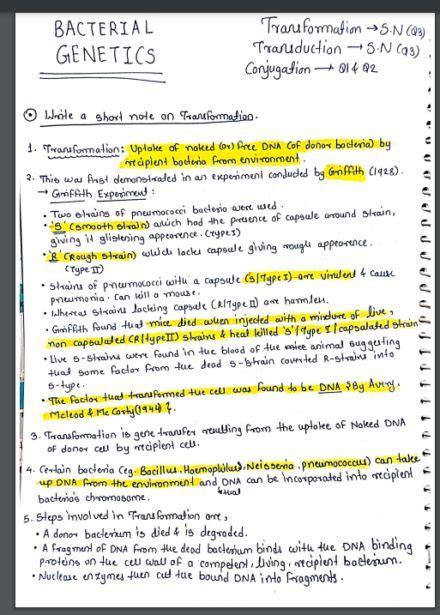 BACTERIAL
GENETICS
Transformation → S.N (Q3)
Transduction → S.N (Q3)
Conjugation → Q1 & Q2
Write a short note on Transformation.
1. Transformation: Uptake of naked (or) free DNA (of donor bacteria) by
recipient bacteria from environment.
2. This was first demonstrated in an experiment conducted by Griffith (1928).
→ Griffith Experiment:
• Two strains of pneumococci bacteria were used.
• 'S' (smooth strain) which had the presence of capsule around strain,
giving it glistening appearence. (Type I)
• 'R' (Rough strain) which lacks capsule giving rough appearence.
(Type II)
• Strains of pneumococci with a capsule (S/Type I) are virulent & cause
pneumonia. Can kill a mouse.
• Whereas strains lacking capsule (R/Type II) are harmless.
• Griffith found that mice died when injected with a mixture of live,
non capsulated (R/type II) strains & heat killed 'S'/Type I/capsulated strain
• Live S-strains were found in the blood of the animal suggesting
that some factor from the dead S-strain coverted R-strains into
S-type.
• The factor that transformed the cell was found to be DNA by Avery,
Mcleod & Mc Carty (1944).
3. Transformation is gene transfer resulting from the uptake of Naked DNA
of donor cell by recipient cell.
4. Certain bacteria (eg. Bacillus, Haemophilus, Neisseria, pneumococcus) can take
up DNA from the environment and DNA can be incorporated into recipient
that
bacteria's chromosome.
5. Steps involved in Transformation are,
• A donor bacterium is died & is degraded.
• A fragment of DNA from the dead bacterium binds with the DNA binding
proteins on the cell wall of a competent, living, recipient bacterium.
• Nuclease enzymes then cut the bound DNA into fragments.